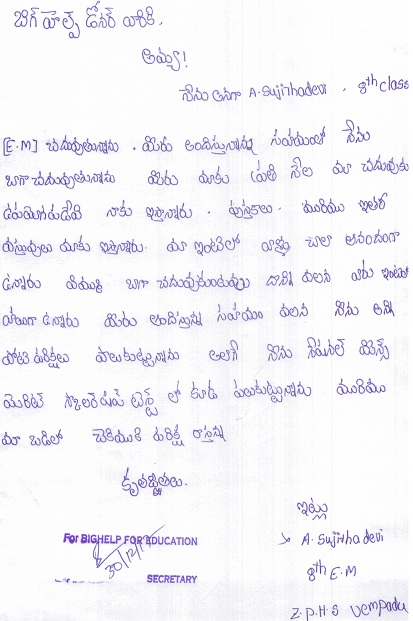 బిగ్ హెల్ప్ డోనర్ వారికి,
అమ్మ!
నేను అనగా A. Sujithadevi . 8th class
[E.M] చదువుతున్నాను . మీరు అందిస్తున్న సహాయంతో నేను
బాగా చదువుతున్నాను మీరు మాకు ప్రతి నెల మా చదువుకు
ఉపయోగపడేవి నాకు ఇస్తున్నారు . పుస్తకాలు . మరియు ఇతర
వస్తువులు మాకు ఇస్తున్నారు. మా ఇంటిలో వాళ్ళు చాలా ఆనందంగా
ఉన్నారు మేము బాగా చదువుకుంటున్నాము దాని వలన వారు
ఉన్నారు మీరు అందిస్తున్న సహాయం వలన నేను అన్ని
పోటి పరీక్షలు పాలుకుట్టున్నాను అలాగే నేను నేషనల్ మీన్స్
మెరిట్ స్కాలర్ షిప్ టెస్ట్ లో కూడ పలుకుట్టున్నాను మరియు
మా బడిలో చెకుముకి పరీక్ష రాస్తున్న
కృతజ్ఞతలు.
ఇట్లు
A. Sujithadevi
8th E.M
Z.P.H.S Vempadu
For BIGHELP FOR EDUCATION
30/12/
SECRETARY